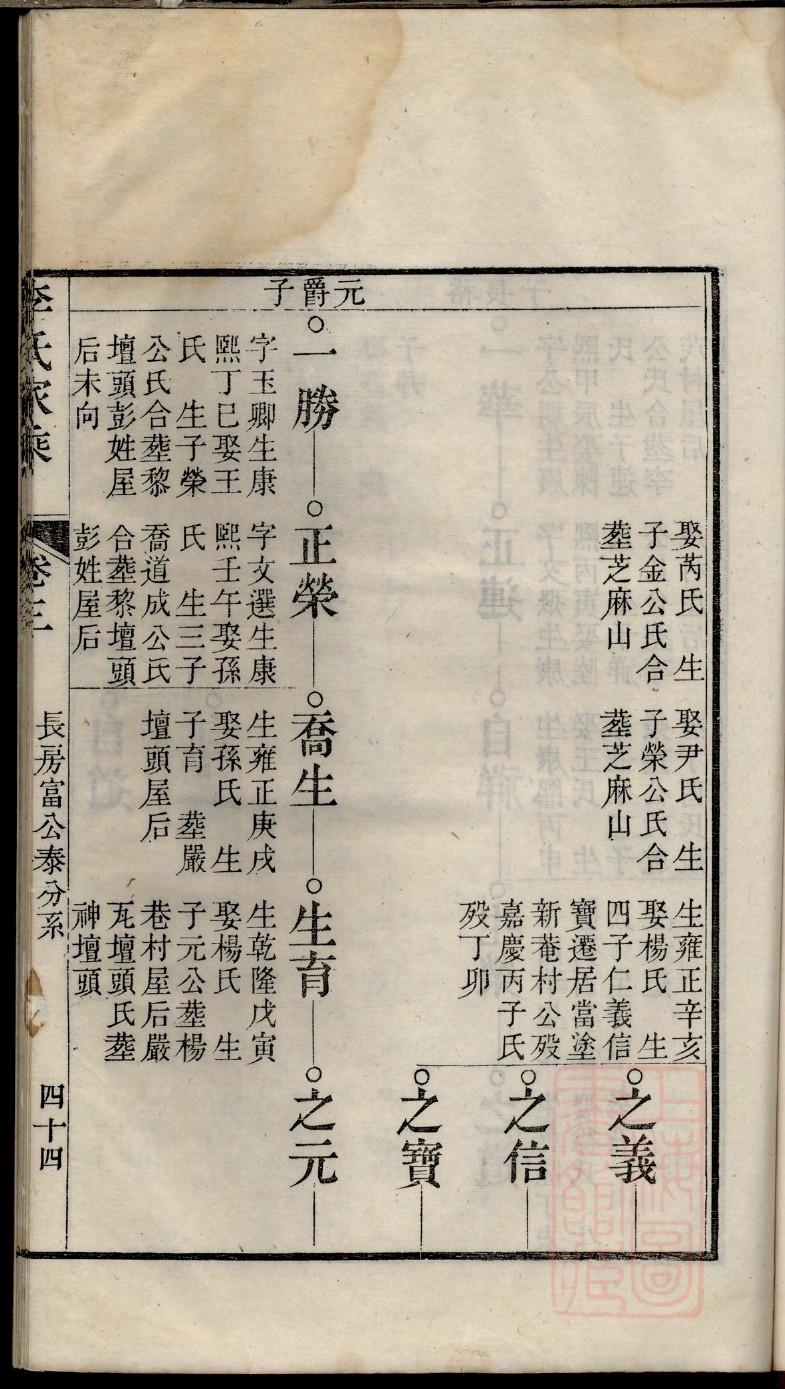 元爵子
娶芮氏　生
子金公氏合
塟芝麻山
娶尹氏　生
子榮公氏合
塟芝麻山
生雍正辛亥
娶楊氏　生
四子仁義信
寶遷居當塗
新菴村公殁
嘉慶丙子氏
殁丁卯
之義
之信
之寶
一勝
字玉卿生康
熙丁巳娶王
氏　生子榮
公氏合塟黎
壇頭彭姓屋
后未向
正榮
字文選生康
熙壬午娶孫
氏　生三子
喬道成公氏
合塟黎壇頭
彭姓屋后
喬生
生雍正庚戌
娶孫氏　生
子育　塟嚴
壇頭屋后
生育
生乾隆戊寅
娶楊氏　生
子元公塟楊
巷村屋后嚴
瓦壇頭氏塟
神壇頭
之元
李氏家乘
卷三
長房富公泰分系
四十四